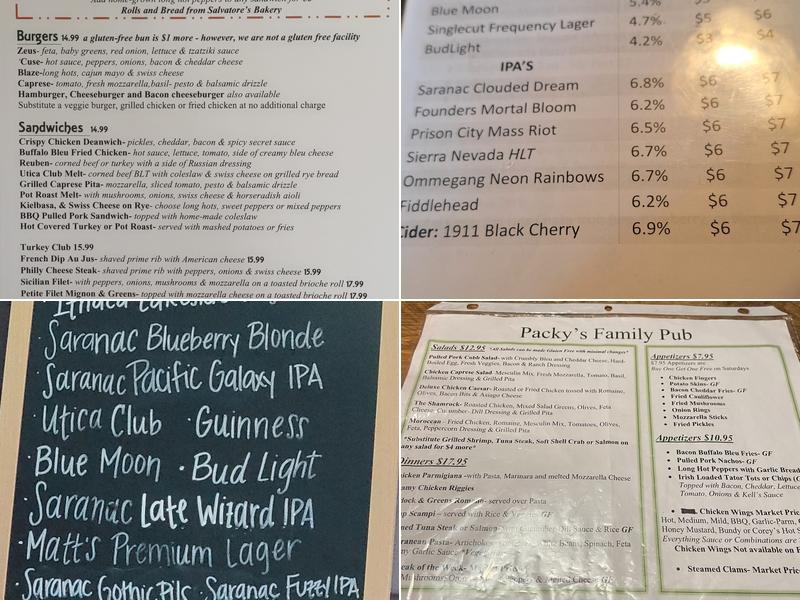 Rolls and Bread from Salvatore's Bakery
Burgers 14.99 a gluten-free bun is $1 more - however, we are not a gluten free facility
Zeus- feta, baby greens, red onion, lettuce & tzatziki sauce
'Cuse- hot sauce, peppers, onions, bacon & cheddar cheese
Blaze-long hots, cajun mayo & swiss cheese
Caprese- tomato, fresh mozzarella,basil- pesto & balsamic drizzle
Hamburger, Cheeseburger and Bacon cheeseburger also available
Substitute a veggie burger, grilled chicken or fried chicken at no additional charge
Sandwiches 14.99
Crispy Chicken Deanwich- pickles, cheddar, bacon & spicy secret sauce
Buffalo Bleu Fried Chicken- hot sauce, lettuce, tomato, side of creamy bleu cheese
Reuben- corned beef or turkey with a side of Russian dressing
Utica Club Melt- corned beef BLT with coleslaw & swiss cheese on grilled rye bread
Grilled Caprese Pita- mozzarella, sliced tomato, pesto & balsamic drizzle
Pot Roast Melt- with mushrooms, onions, swiss cheese & horseradish aioli
Kielbasa, & Swiss Cheese on Rye- choose long hots, sweet peppers or mixed peppers
BBQ Pulled Pork Sandwich- topped with home-made coleslaw
Hot Covered Turkey or Pot Roast- served with mashed potatoes or fries
Turkey Club 15.99
French Dip Au Jus- shaved prime rib with American cheese 15.99
Philly Cheese Steak- shaved prime rib with peppers, onions & swiss cheese 15.99
Sicilian Filet- with peppers, onions, mushrooms & mozzarella on a toasted brioche roll 17.99
Petite Filet Mignon & Greens- topped with mozzarella cheese on a toasted brioche roll 17.99
Blue Moon 5.4%
Singlecut Frequency Lager 4.7% $5 $6
BudLight 4.2% $3 $4
IPA'S
Saranac Clouded Dream 6.8% $6 $7
Founders Mortal Bloom 6.2% $6 $7
Prison City Mass Riot 6.5% $6 $7
Sierra Nevada HLT 6.7% $6 $7
Ommegang Neon Rainbows 6.7% $6 $7
Fiddlehead 6.2% $6 $7
Cider: 1911 Black Cherry 6.9% $6 $7
· Saranac Blueberry Blonde
· Saranac Pacific Galaxy IPA
· Utica Club · Guinness
· Blue Moon · Bud Light
· Saranac Late Wizard IPA
· Matt's Premium Lager
· Saranac Gothic Pils · Saranac Fuzzy IPA
Packy's Family Pub
Salads $12.95 *All Salads can be made Gluten Free with minimal changes*
Pulled Pork Cobb Salad- with Crumbly Bleu and Cheddar Cheese, Hard-
Boiled Egg, Fresh Veggies, Bacon & Ranch Dressing
Chicken Caprese Salad- Mesculin Mix, Fresh Mozzarella, Tomato, Basil,
Balsamic Dressing & Grilled Pita
Deluxe Chicken Caesar- Roasted or Fried Chicken tossed with Romaine,
Olives, Bacon Bits & Asiago Cheese
The Shamrock- Roasted Chicken, Mixed Salad Greens, Olives, Feta
Cheese, Cucumber- Dill Dressing & Grilled Pita
Moroccan- Fried Chicken, Romaine, Mesculin Mix, Tomatoes, Olives,
Feta, Peppercorn Dressing & Grilled Pita
*Substitute Grilled Shrimp, Tuna Steak, Soft Shell Crab or Salmon on
any salad for $4 more*
Dinners $17.95
Chicken Parmigiana -with Pasta, Marinara and melted Mozzarella Cheese
Chicken Riggies
& Greens Romano- served over Pasta
Scampi - served with Rice & GF
Tuna Steak or Salmon- Sauce & Rice GF
Pasta- Beans, Spinach, Feta
Garlic Sauce
Steak of the Week-
Mushrooms Cheese GF
Appetizers $7.95
$7.95 Appetizers are
Buy One Get One Free on Saturdays
• Chicken Fingers
• Potato Skins- GF
• Bacon Cheddar Fries- GF
• Fried Cauliflower
• Fried Mushrooms
• Onion Rings
• Mozzarella Sticks
• Fried Pickles
Appetizers $10.95
• Bacon Buffalo Bleu Fries- GF
• Pulled Pork Nachos- GF
• Long Hot Peppers with Garlic Bread
• Irish Loaded Tator Tots or Chips (G
Topped with Bacon, Cheddar, Lettuce
Tomato, Onions & Kell's Sauce
• Chicken Wings Market Pric
Hot, Medium, Mild, BBQ, Garlic-Parm,
Honey Mustard, Bundy or Corey's Hot S
Everything Sauce or Combinations are
Chicken Wings Not available on F
• Steamed Clams- Market Pric